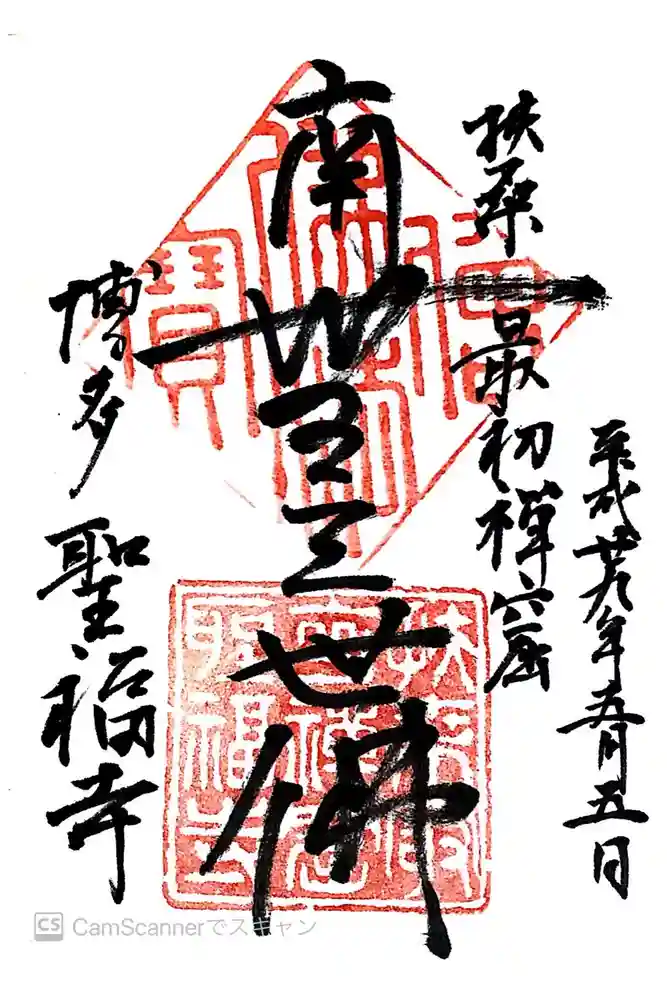 平成廿九年五月五日
扶桑最初禅窟
南無三世佛
博多 聖福寺
扶桑最
初禪窟
聖福寺
CS CamScannerでスキャン